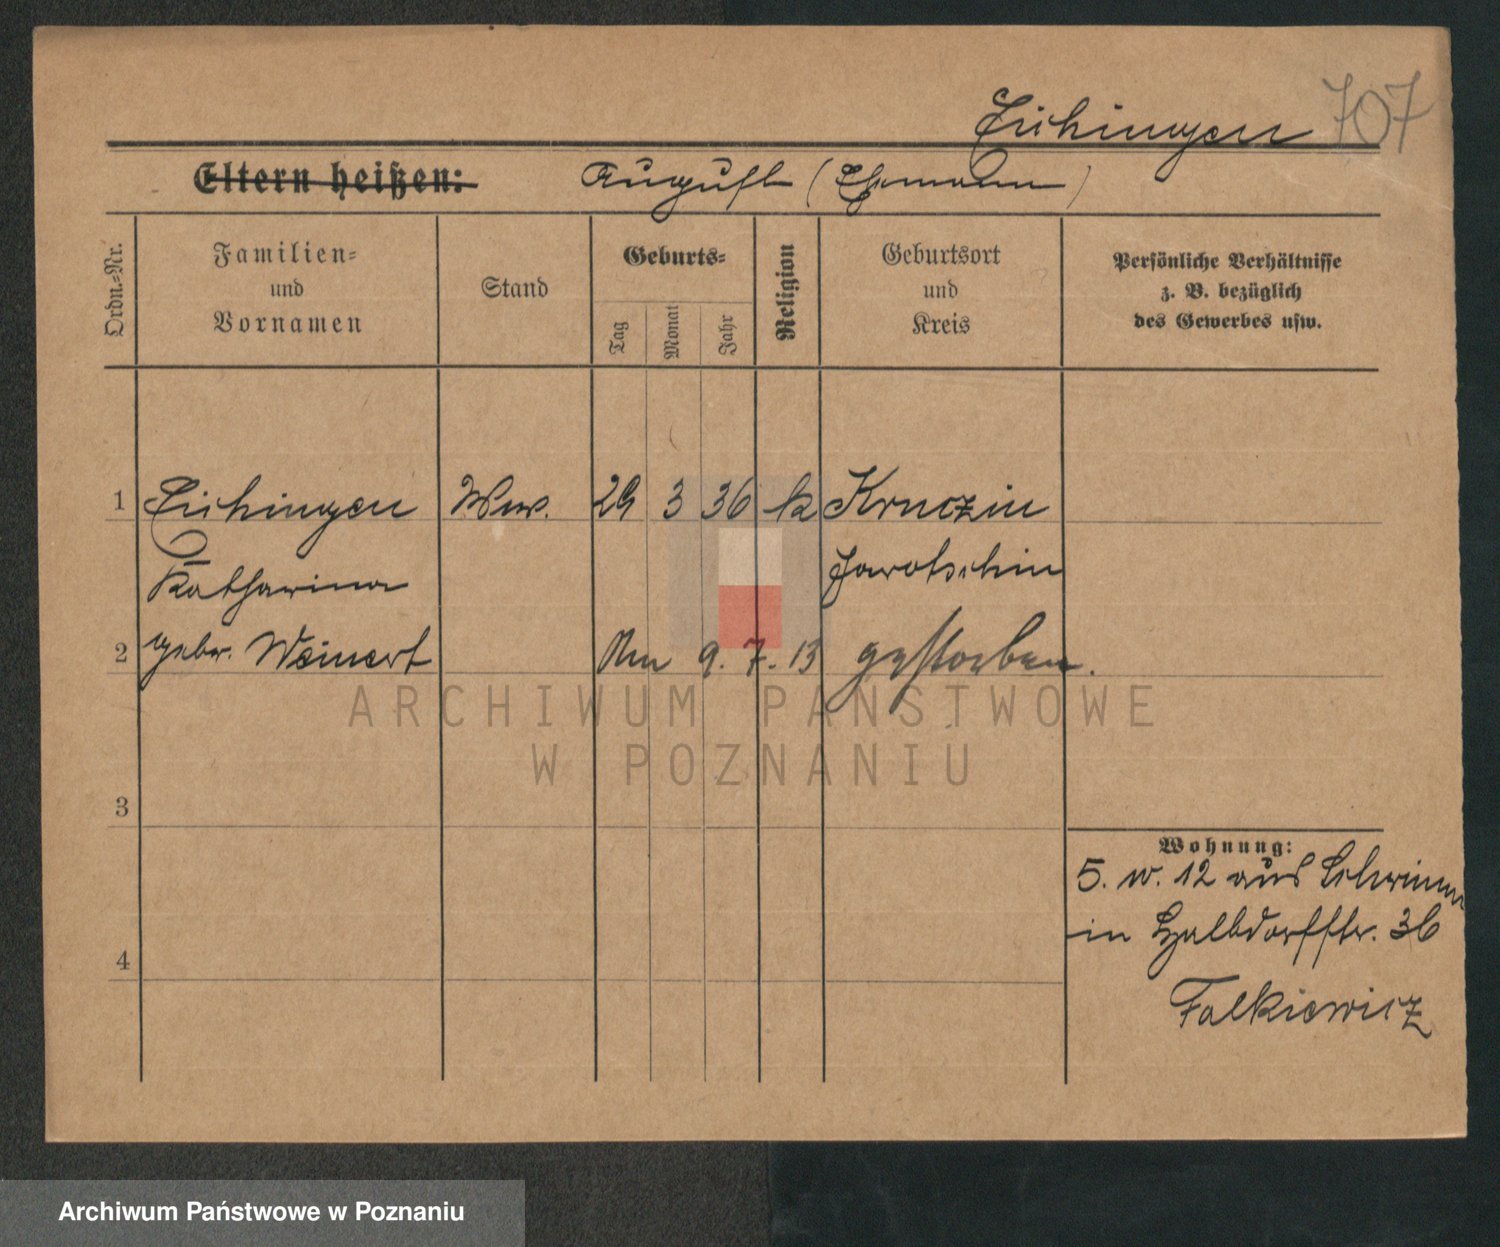 707
Eichingen
Eltern heißen: August (Ehemann)
Ordn.-Nr.
Familien-
und
Vornamen
Stand
Geburts-
Tag
Monat
Jahr
Religion
Geburtsort
und
Kreis
Persönliche Verhältnisse
z. B. bezüglich
des Gewerbes usw.
1 Eichingen Ww. 29 3 36 k Kruczin
Katharina Jarotschin
2 gebr. Weinert Am 9. 7. 13 gestorben.
3
4
Wohnung:
5. 10. 12 aus
in Halbdorfstr. 36
Falkiewicz
ARCHIWUM PAŃSTWOWE
W POZNANIU
Archiwum Państwowe w Poznaniu